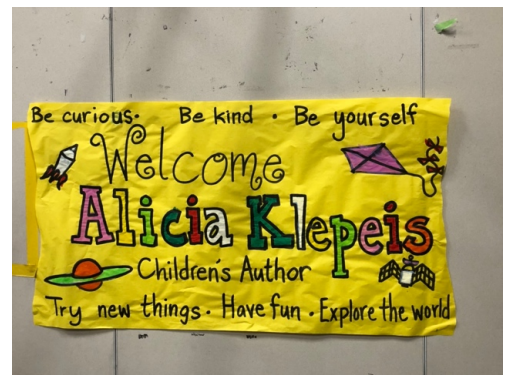 Be curious. Be kind · Be yourself
Welcome
Alicia Klepeis
Children's Author
Try new things · Have fun · Explore the world